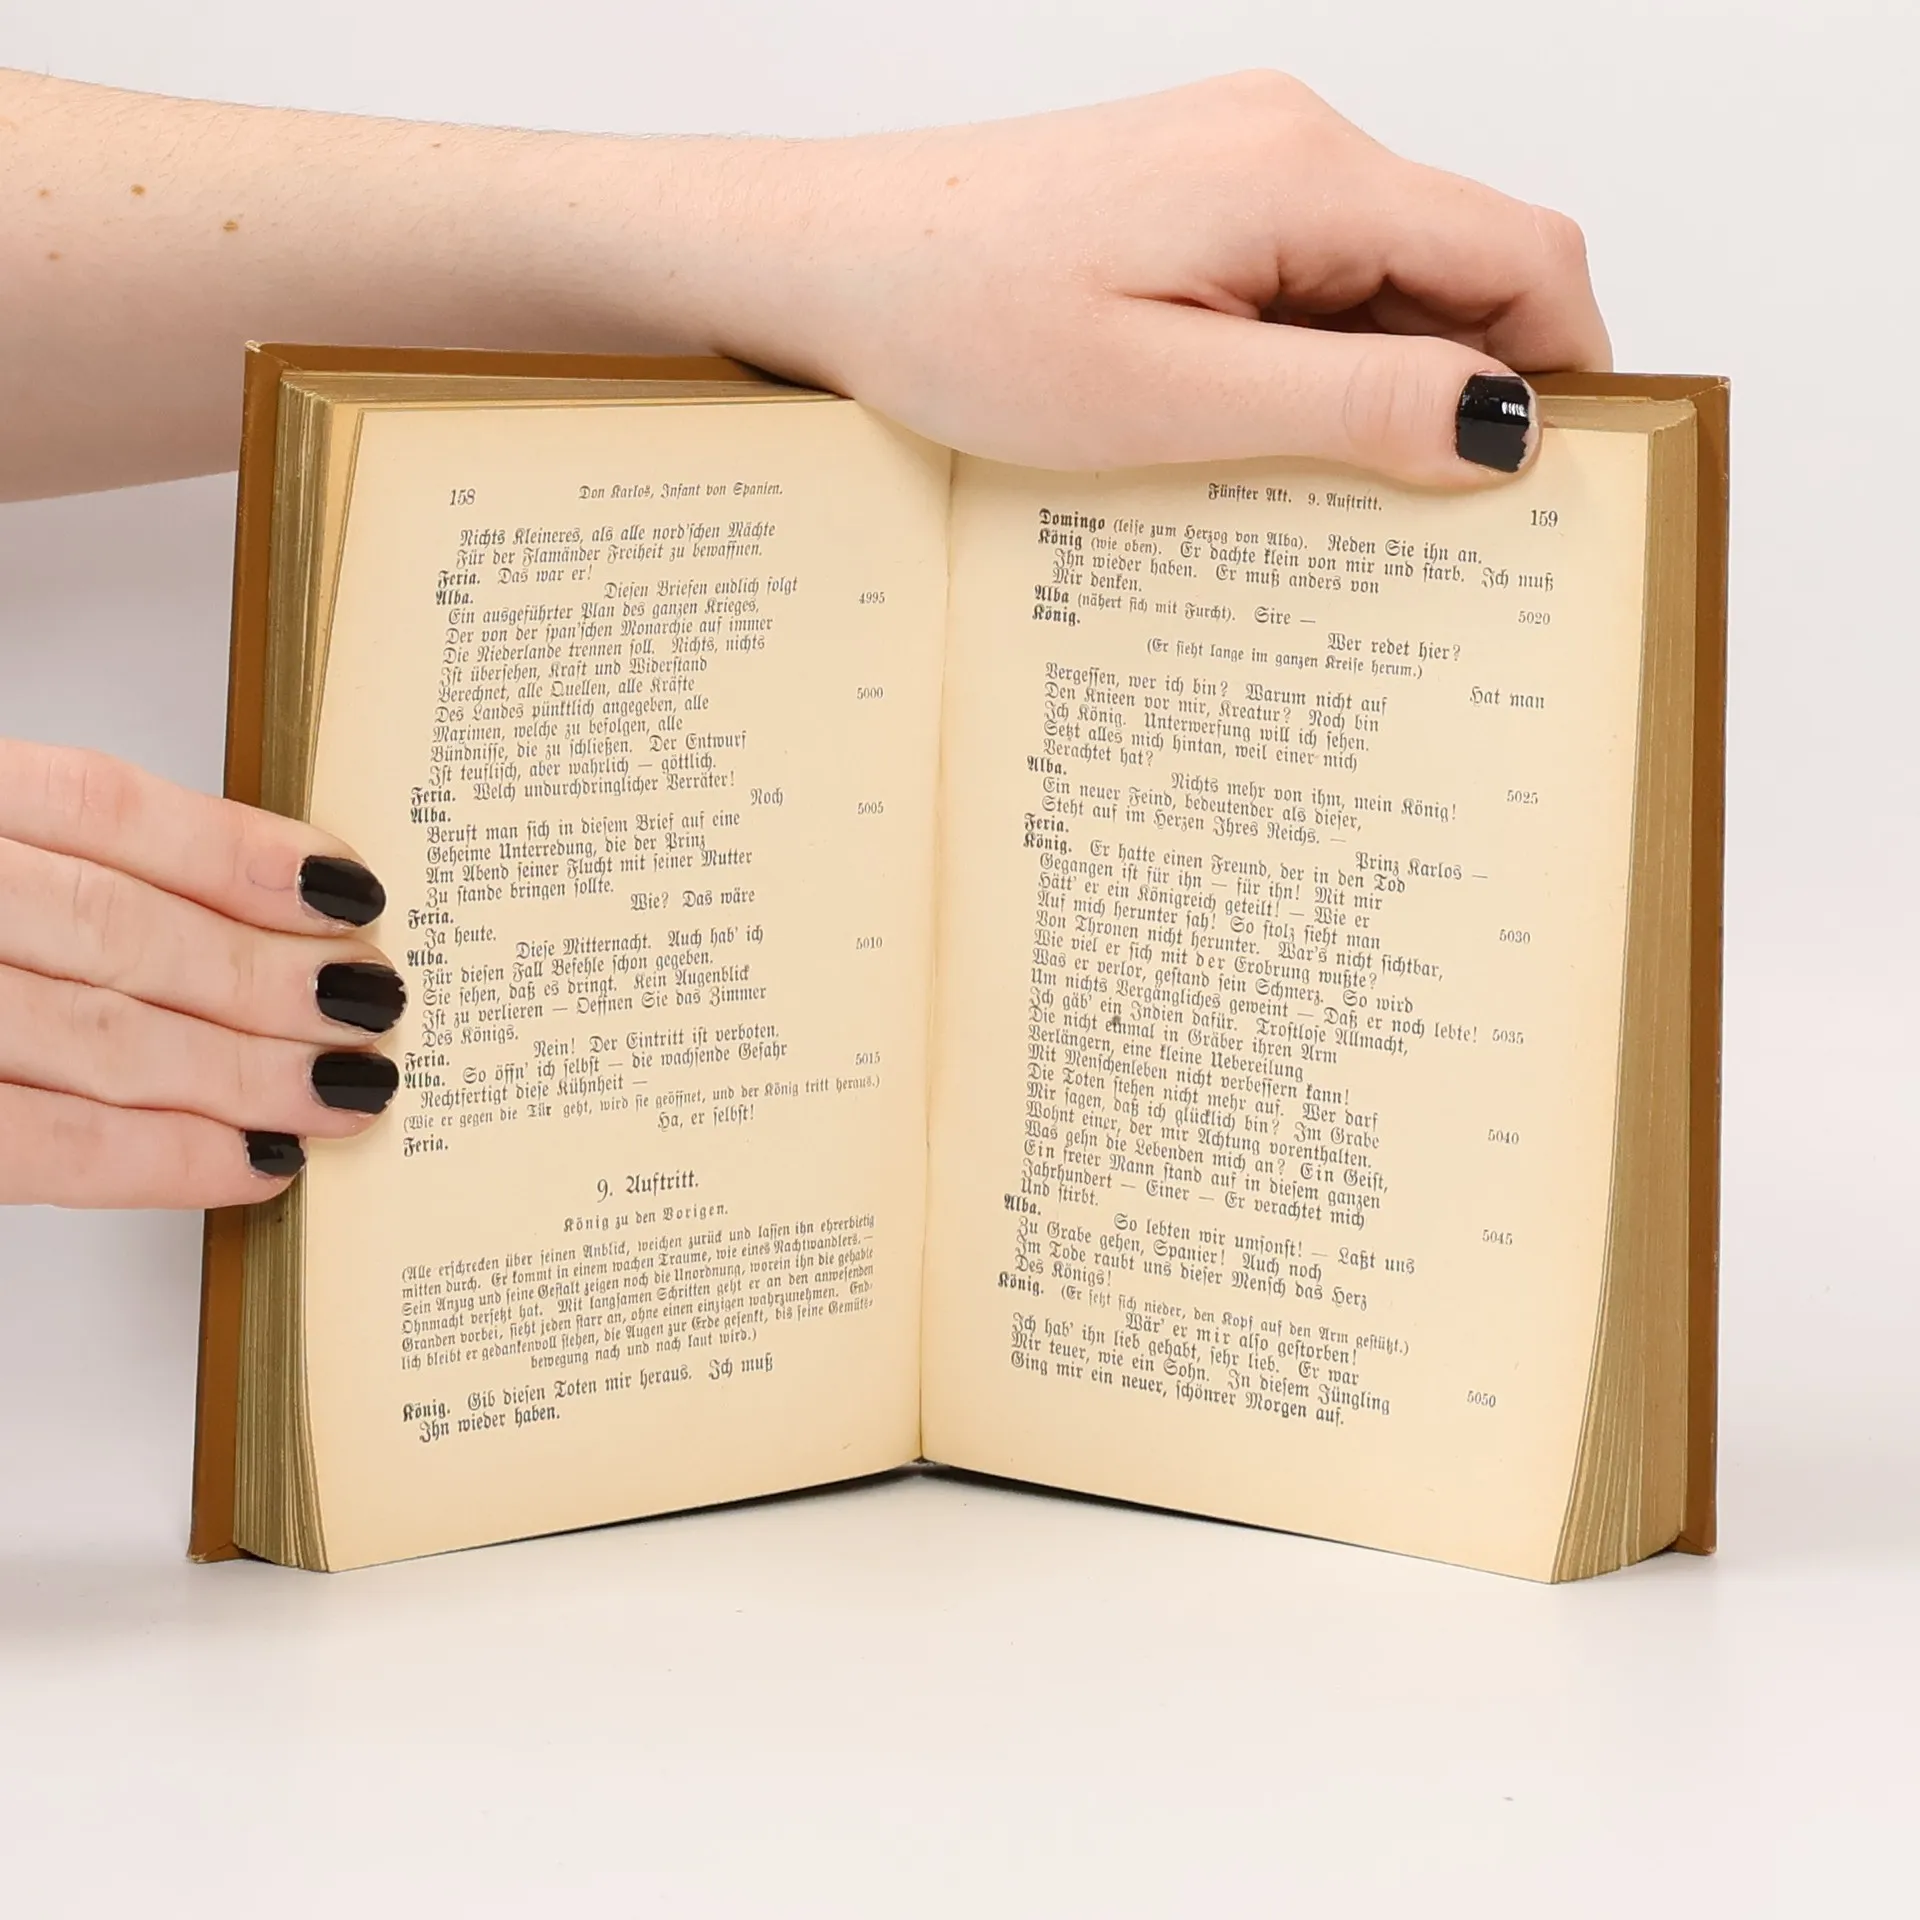 158
Don Karlos, Infant von Spanien.
Nichts Kleineres, als alle nord'schen Mächte
Für der Flamänder Freiheit zu bewaffnen.
Feria. Das war er!
Alba. Diesen Briefen endlich folgt
Ein ausgeführter Plan des ganzen Krieges, 4995
Der von der span'schen Monarchie auf immer
Die Niederlande trennen soll. Nichts, nichts
Ist übersehen, Kraft und Widerstand
Berechnet, alle Quellen, alle Kräfte
Des Landes pünktlich angegeben, alle 5000
Maximen, welche zu befolgen, alle
Bündnisse, die zu schließen. Der Entwurf
Ist teuflisch, aber wahrlich — göttlich.
Feria. Welch undurchdringlicher Verräter!
Alba. Noch
Beruft man sich in diesem Brief auf eine 5005
Geheime Unterredung, die der Prinz
Am Abend seiner Flucht mit seiner Mutter
Zu stande bringen sollte.
Feria. Wie? Das wäre
Ja heute.
Alba. Diese Mitternacht. Auch hab' ich
Für diesen Fall Befehle schon gegeben. 5010
Sie sehen, daß es dringt. Kein Augenblick
Ist zu verlieren — Oeffnen Sie das Zimmer
Des Königs.
Feria. Nein! Der Eintritt ist verboten.
Alba. So öffn' ich selbst — die wachsende Gefahr
Rechtfertigt diese Kühnheit — 5015
(Wie er gegen die Tür geht, wird sie geöffnet, und der König tritt heraus.)
Feria. Ha, er selbst!
9. Auftritt.
König zu den Vorigen.
(Alle erschrecken über seinen Anblick, weichen zurück und lassen ihn ehrerbietig
mitten durch. Er kommt in einem wachen Traume, wie eines Nachtwandlers. —
Sein Anzug und seine Gestalt zeigen noch die Unordnung, worein ihn die gehabte
Ohnmacht versetzt hat. Mit langsamen Schritten geht er an den anwesenden
Granden vorbei, sieht jeden starr an, ohne einen einzigen wahrzunehmen. End-
lich bleibt er gedankenvoll stehen, die Augen zur Erde gesenkt, bis seine Gemüts-
bewegung nach und nach laut wird.)
König. Gib diesen Toten mir heraus. Ich muß
Ihn wieder haben.
Fünfter Akt. 9. Auftritt.
159
Domingo (leise zum Herzog von Alba). Reden Sie ihn an.
König (wie oben). Er dachte klein von mir und starb. Ich muß
Ihn wieder haben. Er muß anders von
Mir denken.
Alba (nähert sich mit Furcht). Sire — 5020
König. Wer redet hier?
(Er sieht lange im ganzen Kreise herum.)
Hat man
Vergessen, wer ich bin? Warum nicht auf
Den Knieen vor mir, Kreatur? Noch bin
Ich König. Unterwerfung will ich sehen.
Setzt alles mich hintan, weil einer mich
Verachtet hat?
Alba. Nichts mehr von ihm, mein König! 5025
Ein neuer Feind, bedeutender als dieser,
Steht auf im Herzen Ihres Reichs. —
Feria. Prinz Karlos —
König. Er hatte einen Freund, der in den Tod
Gegangen ist für ihn — für ihn! Mit mir
Hätt' er ein Königreich geteilt! — Wie er 5030
Auf mich herunter sah! So stolz sieht man
Von Thronen nicht herunter. War's nicht sichtbar,
Wie viel er sich mit der Erobrung wußte?
Was er verlor, gestand sein Schmerz. So wird
Um nichts Vergängliches geweint — Daß er noch lebte! 5035
Ich gäb' ein Indien dafür. Trostlose Allmacht,
Die nicht einmal in Gräber ihren Arm
Verlängern, eine kleine Uebereilung
Mit Menschenleben nicht verbessern kann!
Die Toten stehen nicht mehr auf. Wer darf
Mir sagen, daß ich glücklich bin? Im Grabe 5040
Wohnt einer, der mir Achtung vorenthalten.
Was gehn die Lebenden mich an? Ein Geist,
Ein freier Mann stand auf in diesem ganzen
Jahrhundert — Einer — Er verachtet mich
Und stirbt.
Alba. So lebten wir umsonst! — Laßt uns 5045
Zu Grabe gehen, Spanier! Auch noch
Im Tode raubt uns dieser Mensch das Herz
Des Königs!
König. (Er setzt sich nieder, den Kopf auf den Arm gestützt.)
Wär' er mir also gestorben!
Ich hab' ihn lieb gehabt, sehr lieb. Er war
Mir teuer, wie ein Sohn. In diesem Jüngling 5050
Ging mir ein neuer, schönrer Morgen auf.